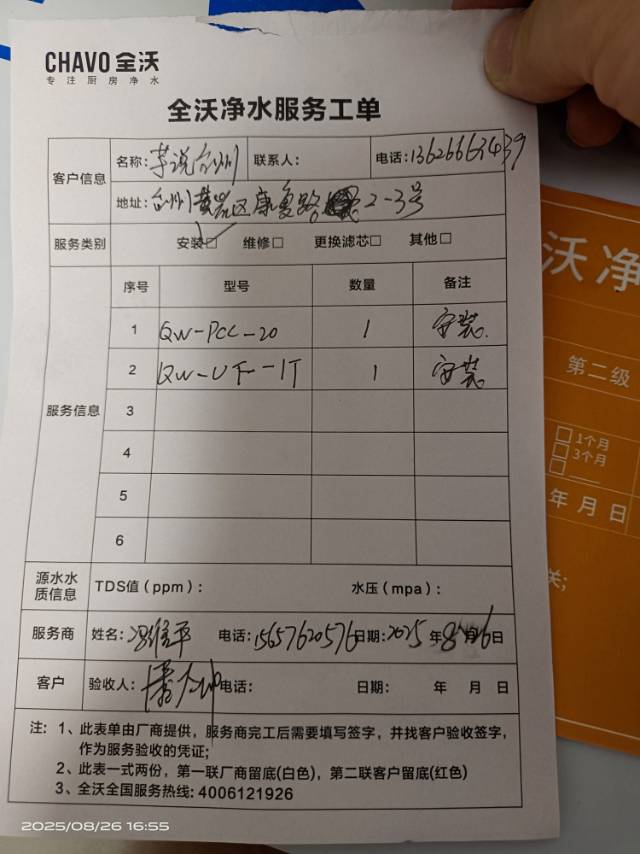 CHAVO 全沃
专注厨房净水
全沃净水服务工单
客户信息
名称：芋说台州 联系人： 电话：13626663439
地址：台州黄岩区康复路 2-3号
服务类别 安装☑ 维修□ 更换滤芯□ 其他□
服务信息
序号 型号 数量 备注
1 QW-PCC-20 1 安装.
2 QW-UF-1T 1 安装
3
4
5
6
源水水质信息 TDS值（ppm）： 水压（mpa）：
服务商 姓名： 电话：15657620576 日期：2025 年 8 月 26 日
客户 验收人： 电话： 日期： 年 月 日
注：1、此表单由厂商提供，服务商完工后需要填写签字，并找客户验收签字，
作为服务验收的凭证；
2、此表一式两份，第一联厂商留底(白色)，第二联客户留底(红色)
3、全沃全国服务热线：4006121926
2025/08/26 16:55
沃净
第二级
□1个月
□3个月
□
年 月 日